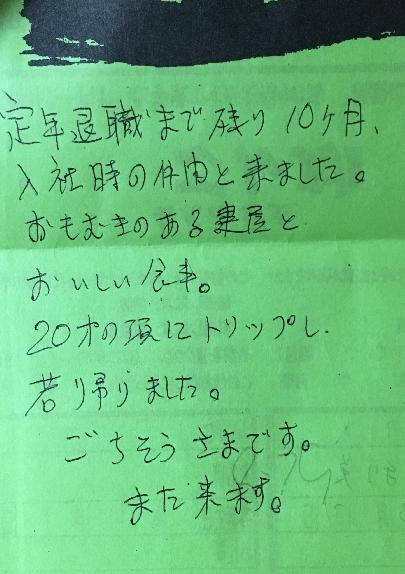 定年退職まで残り10ヶ月、
入社時の仲間と来ました。
おもむきのある建屋と
おいしい食事。
20才の頃にトリップし、
若り帰りました。
ごちそうさまです。
また来ます。